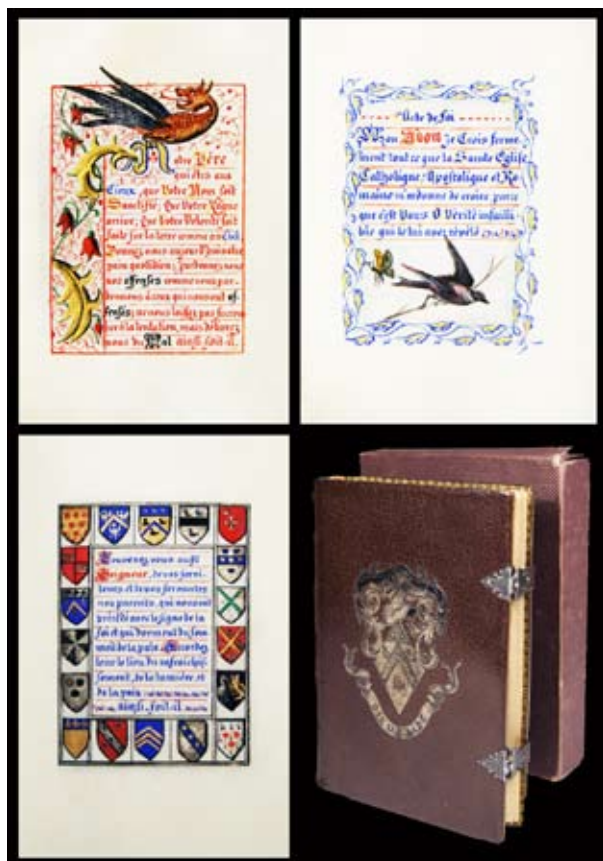 Notre Père
qui êtes aux
Cieux, que Votre Nom soit
Sanctifié; Que Votre Règne
arrive; Que Votre Volonté soit
faite sur la terre comme au Ciel.
Donnez nous aujourd'hui notre
pain quotidien; Pardonnez nous
nos offenses comme nous par-
donnons à ceux qui nous ont of-
fensés; ne nous laissez pas succom
ber à la tentation, mais délivrez
nous du Mal ainsi soit-il.
Acte de foi
Mon Dieu Je Crois ferme-
ment tout ce que la Sainte Eglise
Catholique, Apostolique et Ro
maine m'ordonne de croire parce
que c'est Vous Ô Vérité infailli
ble qui le lui avez révélé
Souvenez vous aussi
Seigneur, de vos servi-
teurs et de vos servantes
nos parents, qui nous ont
précédé avec le signe de la
foi et qui dorment du som
meil de la paix. Accordez
leur le lieu du rafraichis-
sement, de la lumière, et
de la paix
ainsi soit-il